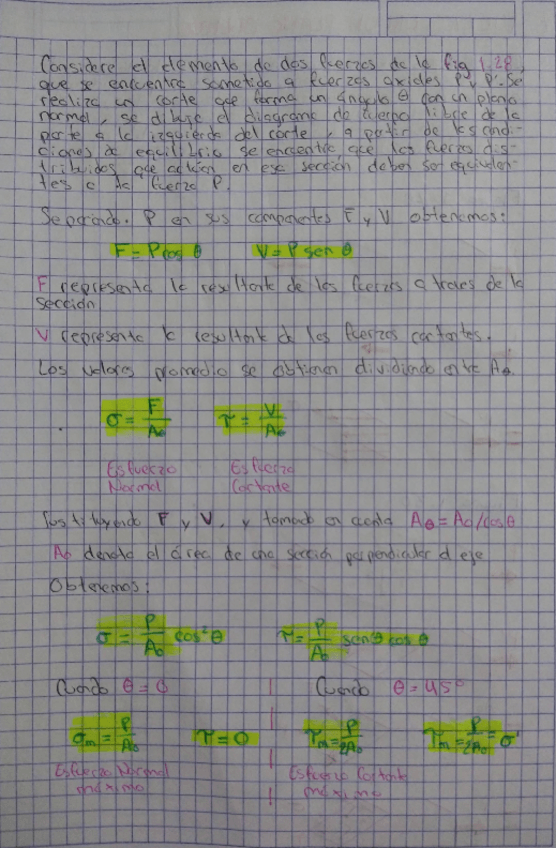 Considere el elemento de dos fuerzas de la fig 1.28,
que se encuentra sometido a fuerzas axiales P y P'. Se
realiza un corte que forma un ángulo θ con un plano
normal, se dibuja el diagrama de cuerpo libre de la
parte a la izquierda del corte, a partir de las condi-
ciones de equilibrio se encuentra que las fuerzas dis-
tribuidas que actúan en esa sección deben ser equivalen-
tes a la fuerza P.
Separando P en sus componentes F y V obtenemos:
F = P cos θ V = P sen θ
F representa la resultante de las fuerzas a traves de la
sección
V representa la resultante de las fuerzas cortantes.
Los valores promedio se obtienen dividiendo entre Aθ.
σ = F/Aθ τ = V/Aθ
Esfuerzo Esfuerzo
Normal Cortante
Sustituyendo F y V, y tomando en cuenta Aθ = A0/cosθ
A0 denota el área de una sección perpendicular al eje
Obtenemos:
σ = P/A0 cos²θ τ = P/A0 senθ cos θ
Cuando θ = 0 Cuando θ = 45°
σm = P/A0 τ = 0 τm = P/2A0 τm = P/2A0 = σ'
Esfuerzo Normal Esfuerzo Cortante
máximo máximo